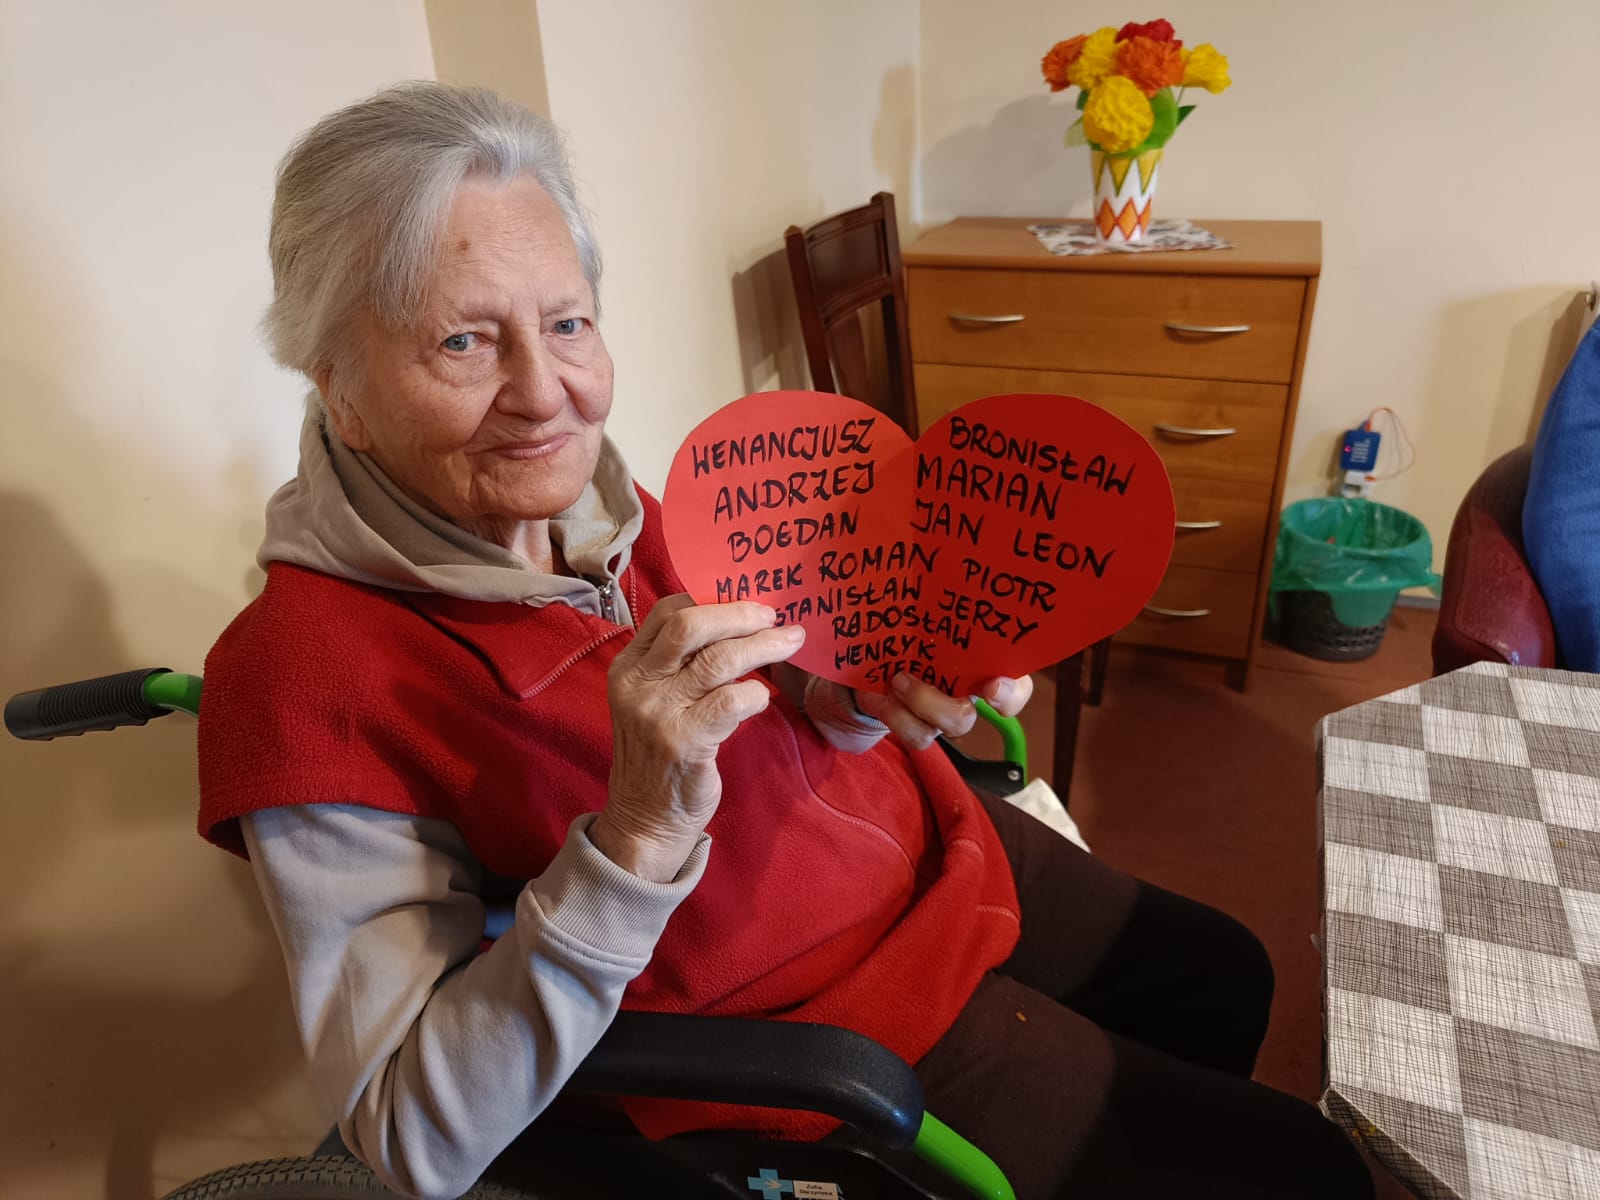 WENANCJUSZ
ANDRZEJ
BOGDAN
MAREK ROMAN PIOTR
STANISŁAW JERZY
RADOSŁAW
HENRYK
STEFAN
BRONISŁAW
MARIAN
JAN LEON
Zofia